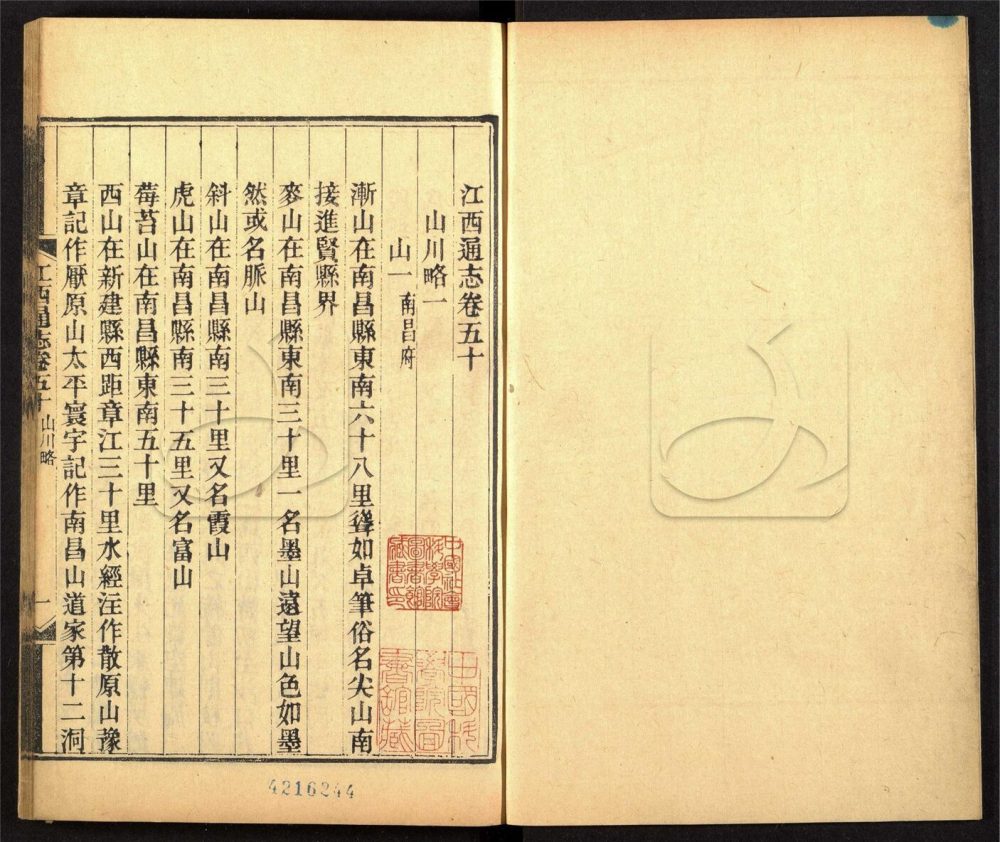 江西通志卷五十
山川略一
山一 南昌府
漸山在南昌縣東南六十八里聳如卓筆俗名尖山南
接進賢縣界
麥山在南昌縣東南三十里一名墨山遠望山色如墨
然或名脈山
斜山在南昌縣南三十里又名霞山
虎山在南昌縣南三十五里又名富山
莓苔山在南昌縣東南五十里
西山在新建縣西距章江三十里水經注作散原山豫
章記作厭原山太平寰宇記作南昌山道家第十二洞
江西通志卷五十 山川略 一
中國社會
科學院
圖書館
藏書印
中國科
學院圖
書館藏
4216244